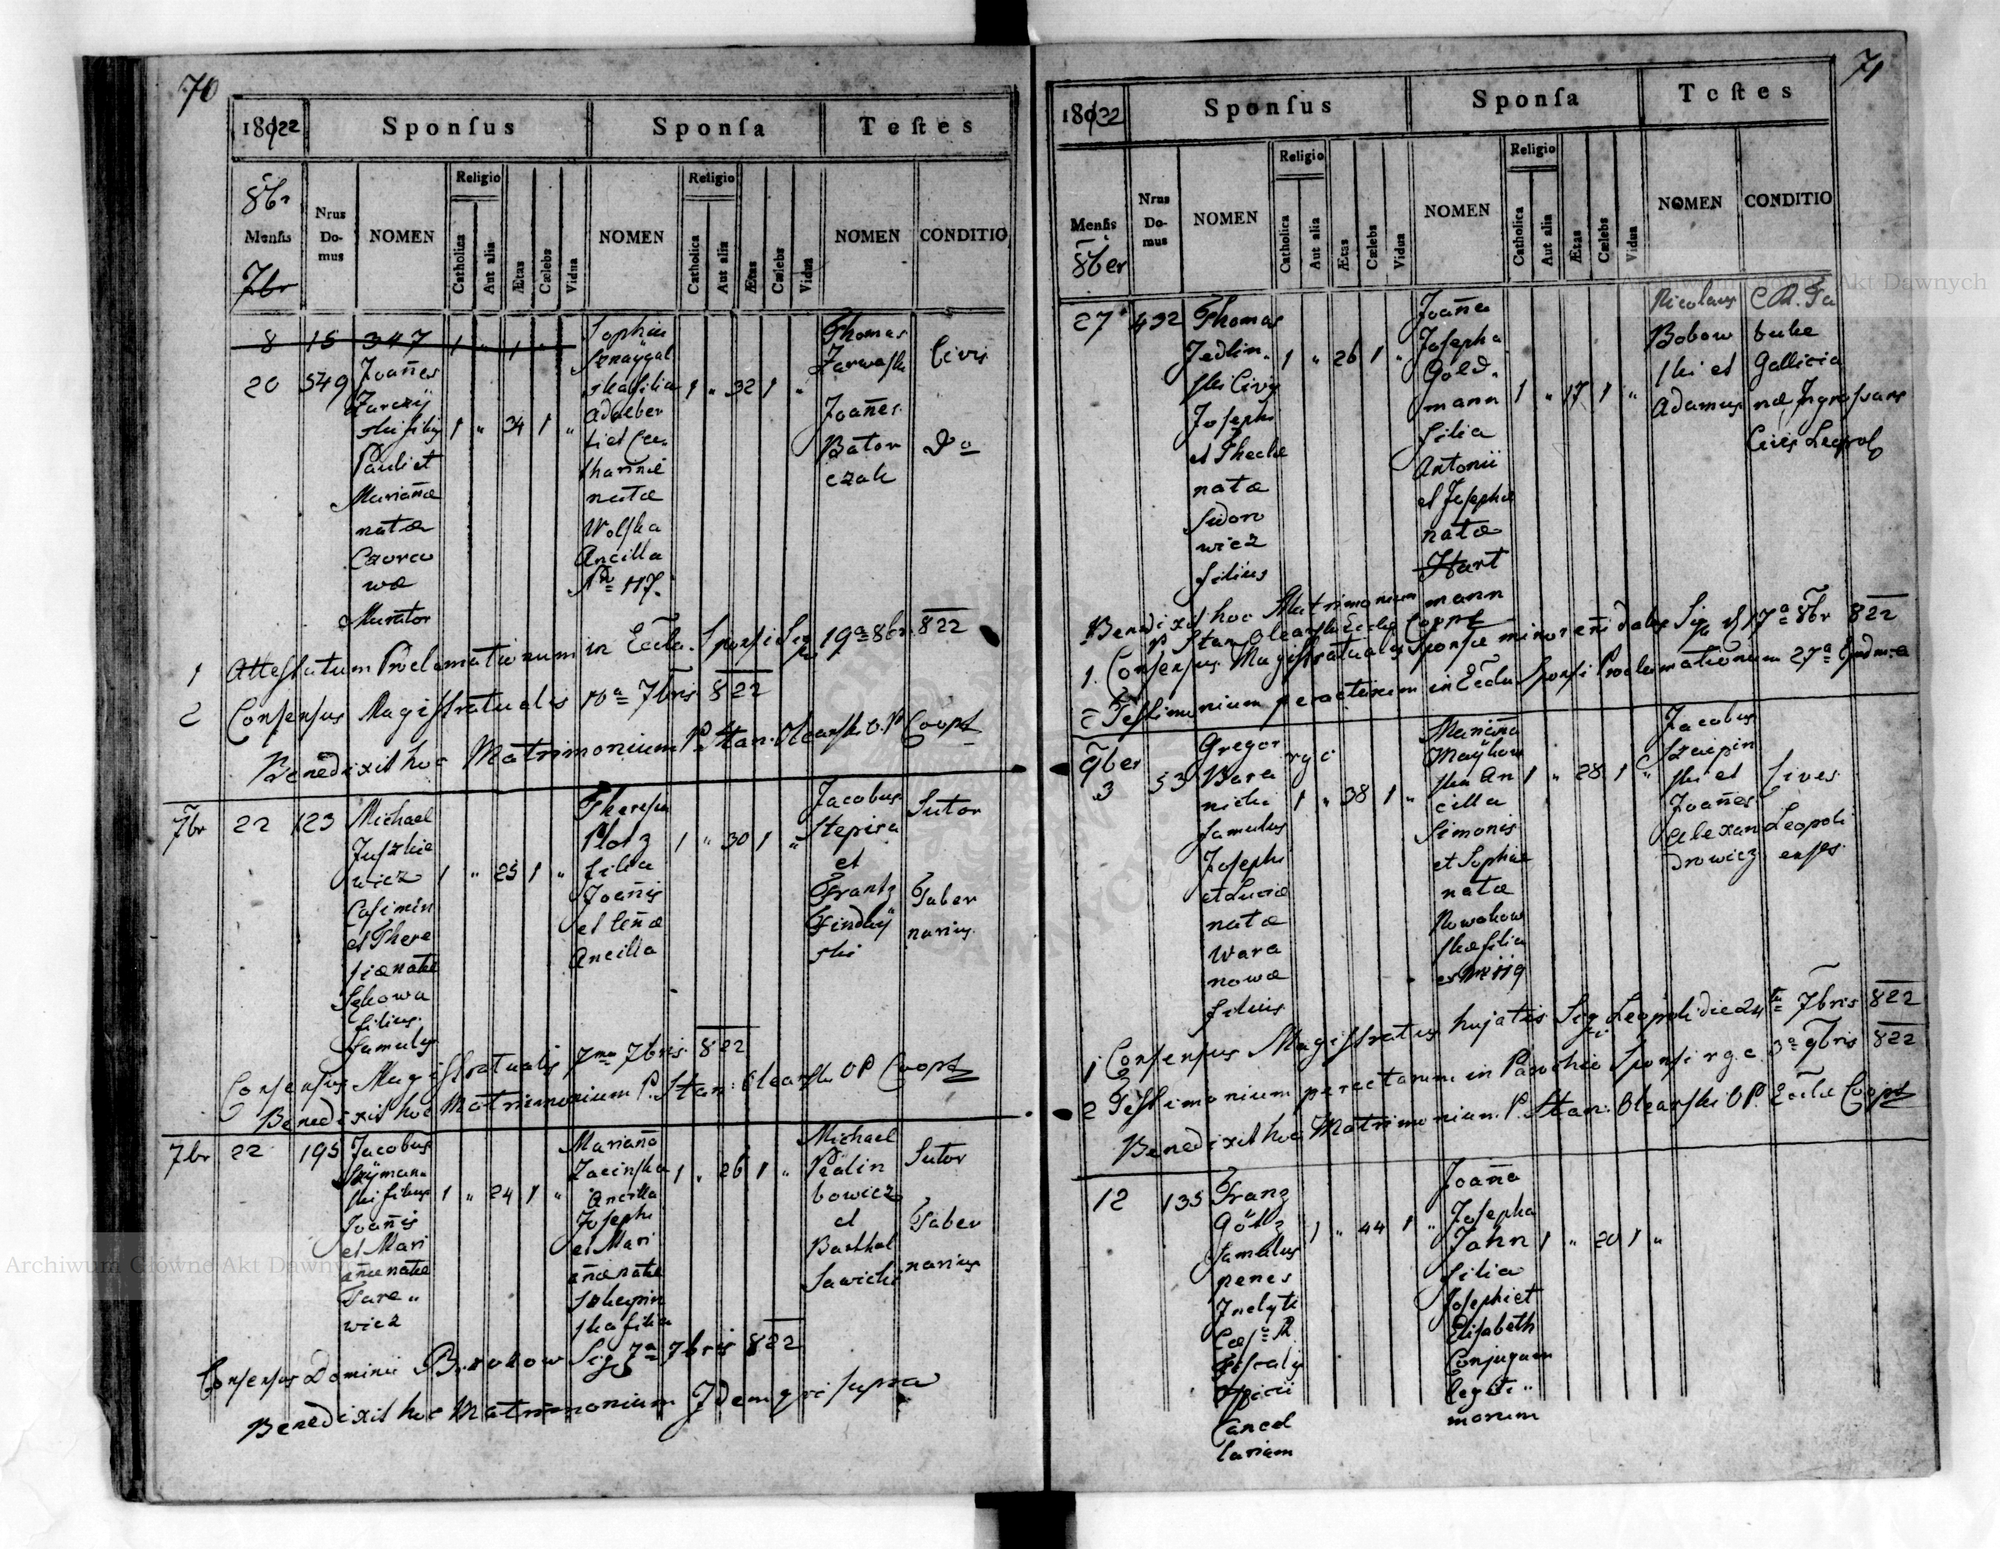 70
1822
Sponsus
Sponsa
Testes
8br
Mensis
7br
Nrus Domus
NOMEN
Religio
Catholica
Aut alia
Ætas
Cælebs
Vidua
NOMEN
Religio
Catholica
Aut alia
Ætas
Cælebs
Vidua
NOMEN
CONDITIO
8 15 347 1 " 1
20 549
Joañes
Pauli et
Mariañæ
natæ
Murator
1 " 34 1 "
Sophia
natæ
Wolska
Ancilla
Nro 117.
1 " 32 1 "
Thomas
Joañes
Bator
czak
Civis
Do
1 Attestatum Proclamationum in Eccla Sponsi 19a 8br. 822
2 Consensus Magistratualis 10a 7bris 822
Benedixit hoc Matrimonium P. Stan. Olearski O.P. Coopt
7br 22 123
Michael
Juszkie
wicz
Casimiri
et There
siæ natæ
filius
famulus
1 " 25 1 "
Theresia
Plotz
filia
Joañis
et Añæ
Ancilla
1 " 30 1 "
Jacobus
et
Frantz
ski
Sutor
Taber
narius
Consensus Magistratualis 7ma 7bris 822
Benedixit hoc Matrimonium P. Stan: Olearski OP Coopt
7br 22 195
Jacobus
Szyman
ski filius
Joañis
et Mari
añæ natæ
wicz
1 " 24 1 "
Mariaña
Ancilla
Josephi
et Mari
añæ natæ
ska filia
1 " 26 1 "
Michael
bowicz
et
Barthol
Sawicki
Sutor
Taber
narius
Consensus Dominii 7a 7bris 822
Benedixit hoc Matrimonium Idem qui supra
71
1822
Sponsus
Sponsa
Testes
Mensis
8ber
Nrus Domus
NOMEN
Religio
Catholica
Aut alia
Ætas
Cælebs
Vidua
NOMEN
Religio
Catholica
Aut alia
Ætas
Cælebs
Vidua
NOMEN
CONDITIO
27 432
Thomas
Jedlin
ski Civis
Josephi
et Theclæ
natæ
Sidoro
wicz
filius
1 " 26 1 "
Joaña
Josepha
Gold
mann
filia
Antonii
et Josephæ
natæ
Hart
mann
1 " 17 1 "
Nicolaus
Bobow
ski et
Adamus
C.R. Ta
bulæ
Gallicia
næ Ingrossans
Civis Leopol
Benedixit hoc Matrimonium
P. Stan. Olearski Eccle Coopt
1. Consensus Magistratualis Sponsæ minoreñi datus 17a 8br 822
2 Testimonium peractarum in Eccla Sponsi Proclamationum 27a
9ber
3 53
Gregor
Bara
nicki
famulus
Josephi
et Luciæ
natæ
Wara
nowæ
filius
r g c
1 " 38 1 "
Mariaña
Maykow
ska An
cilla
Simonis
et Sophiæ
natæ
Nowakow
skæ filia
1 " 28 1 "
Jacobus
ski et
Joañes
Alexan
drowicz
Cives
Leopoli
enses
1 Consensus Magistratus hujatis Leopoli die 24ta 7bris 822
2 Testimonium peractarum in Parochia Sponsi r g c. 3a 9bris 822
Benedixit hoc Matrimonium P. Stan: Olearski OP. Eccle Coopt
12 135
Franz
Götz
famulus
penes
Inclyti
Cæs: R.
Fiscalis
Officii
Cancel
lariam
1 " 44 1 "
Joaña
Josepha
Jahn
filia
Josephi et
Elisabeth
Conjugum
legiti
morum
1 " 20 1 "
Archiwum Główne Akt Dawnych
Archiwum Główne Akt Dawnych